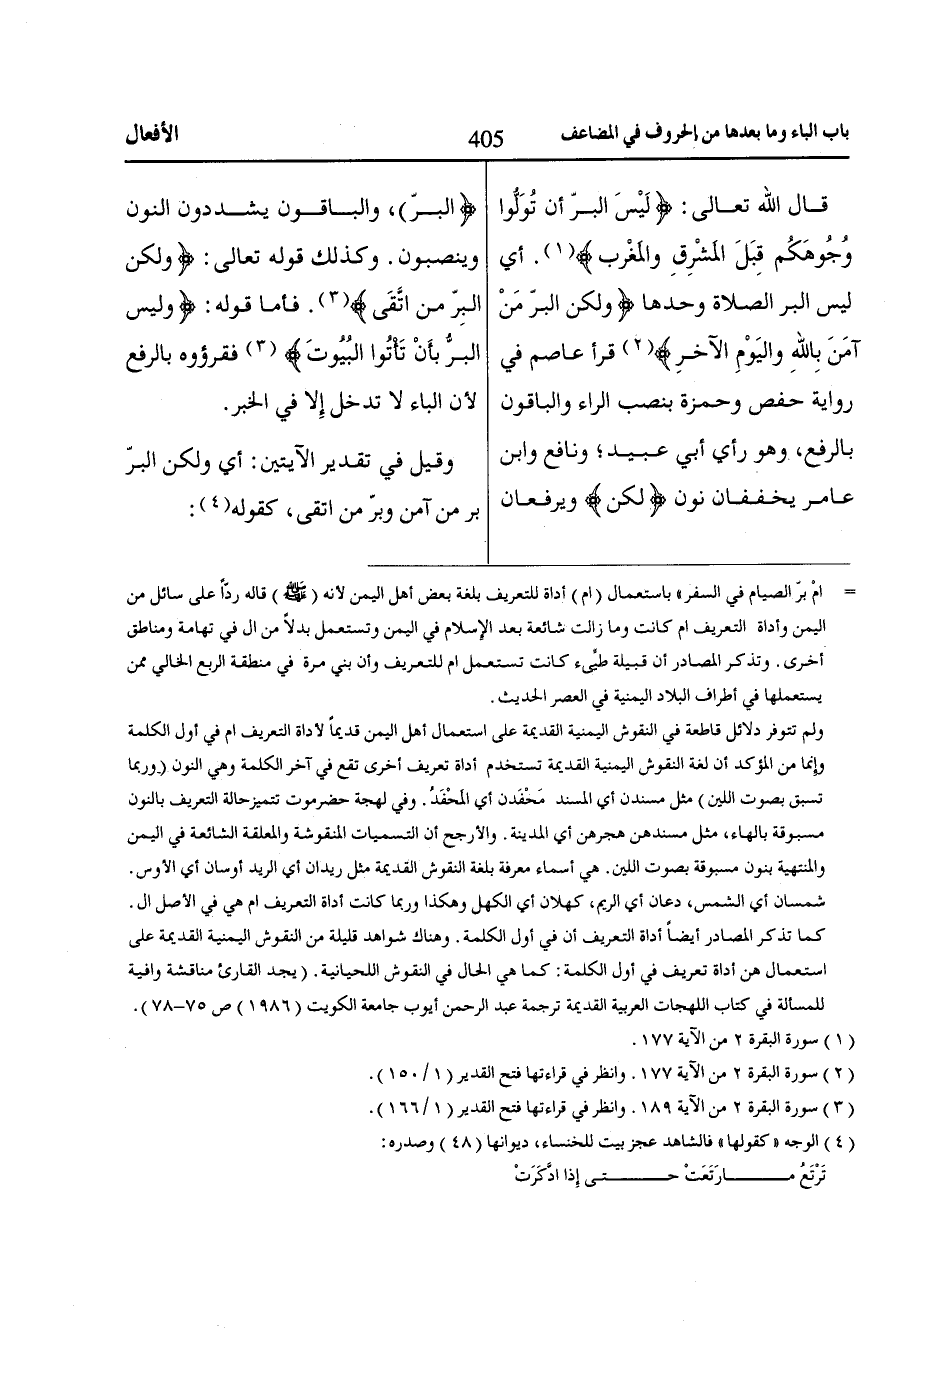 باب الباء وما بعدها من الحروف في المضاعف
405
الأفعال
قال الله تعالى: ﴿لَيْسَ البرَّ أن تُوَلُّوا
وُجُوهَكُم قِبَلَ المَشْرِقِ والمَغْرِب﴾(١). أي
ليس البر الصلاة وحدها ﴿ولكن البرّ مَنْ
آمَنَ بِاللهِ واليَوْمِ الآخر﴾(٢) قرأ عاصم في
رواية حفص وحمزة بنصب الراء والباقون
بالرفع، وهو رأي أبي عبيد؛ ونافع وابن
عامر يخففان نون ﴿لكن﴾ ويرفعان
﴿البرّ)، والباقون يشددون النون
وينصبون. وكذلك قوله تعالى: ﴿ولكن
البِرّ من اتَّقَى﴾(٣). فأما قوله: ﴿وليس
البرُّ بأَنْ تَأتُوا البُيُوتَ﴾ (٣) فقرؤوه بالرفع
لأن الباء لا تدخل إلا في الخبر.
وقيل في تقدير الآيتين: أي ولكن البرّ
بر من آمن وبرّ من اتقى، كقوله(٤):
= امْ برّ الصيام في السفر» باستعمال (ام) أداة للتعريف بلغة بعض أهل اليمن لأنه (ﷺ) قاله ردّاً على سائل من
اليمن وأداة التعريف ام كانت وما زالت شائعة بعد الإسلام في اليمن وتستعمل بدلاً من ال في تهامة ومناطق
أخرى. وتذكر المصادر أن قبيلة طيّىء كانت تستعمل ام للتعريف وأن بني مرة في منطقة الربع الخالي ممن
يستعملها في أطراف البلاد اليمنية في العصر الحديث.
ولم تتوفر دلائل قاطعة في النقوش اليمنية القديمة على استعمال أهل اليمن قديماً لأداة التعريف ام في أول الكلمة
وإنما من المؤكد أن لغة النقوش اليمنية القديمة تستخدم أداة تعريف أخرى تقع في آخر الكلمة وهي النون (وربما
تسبق بصوت اللين) مثل مسندن أي المسند مَحْفَدن أي المَحْفَدُ. وفي لهجة حضرموت تتميز حالة التعريف بالنون
مسبوقة بالهاء، مثل مسندهن هجرهن أي المدينة. والأرجح أن التسميات المنقوشة والمعلقة الشائعة في اليمن
والمنتهية بنون مسبوقة بصوت اللين. هي أسماء معرفة بلغة النقوش القديمة مثل ريدان أي الريد أوسان أي الأوس.
شمسان أي الشمس، دعان أي الريم، كهلان أي الكهل وهكذا وربما كانت أداة التعريف ام هي في الأصل ال.
كما تذكر المصادر أيضاً أداة التعريف أن في أول الكلمة. وهناك شواهد قليلة من النقوش اليمنية القديمة على
استعمال هن أداة تعريف في أول الكلمة: كما هي الحال في النقوش اللحيانية. (يجد القارئ مناقشة وافية
للمسألة في كتاب اللهجات العربية القديمة ترجمة عبد الرحمن أيوب جامعة الكويت (١٩٨٦) ص ٧٥–٧٨).
(١) سورة البقرة ٢ من الآية ١٧٧.
(٢) سورة البقرة ٢ من الآية ١٧٧. وانظر في قراءتها فتح القدير (١/١٥٠).
(٣) سورة البقرة ٢ من الآية ١٨٩. وانظر في قراءتها فتح القدير (١/١٦٦).
(٤) الوجه «كقولها» فالشاهد عجز بيت للخنساء، ديوانها (٤٨) وصدره:
تَرْتَعُ مـــا رَتَعَتْ حـــتى إذا ادَّكَرَتْ